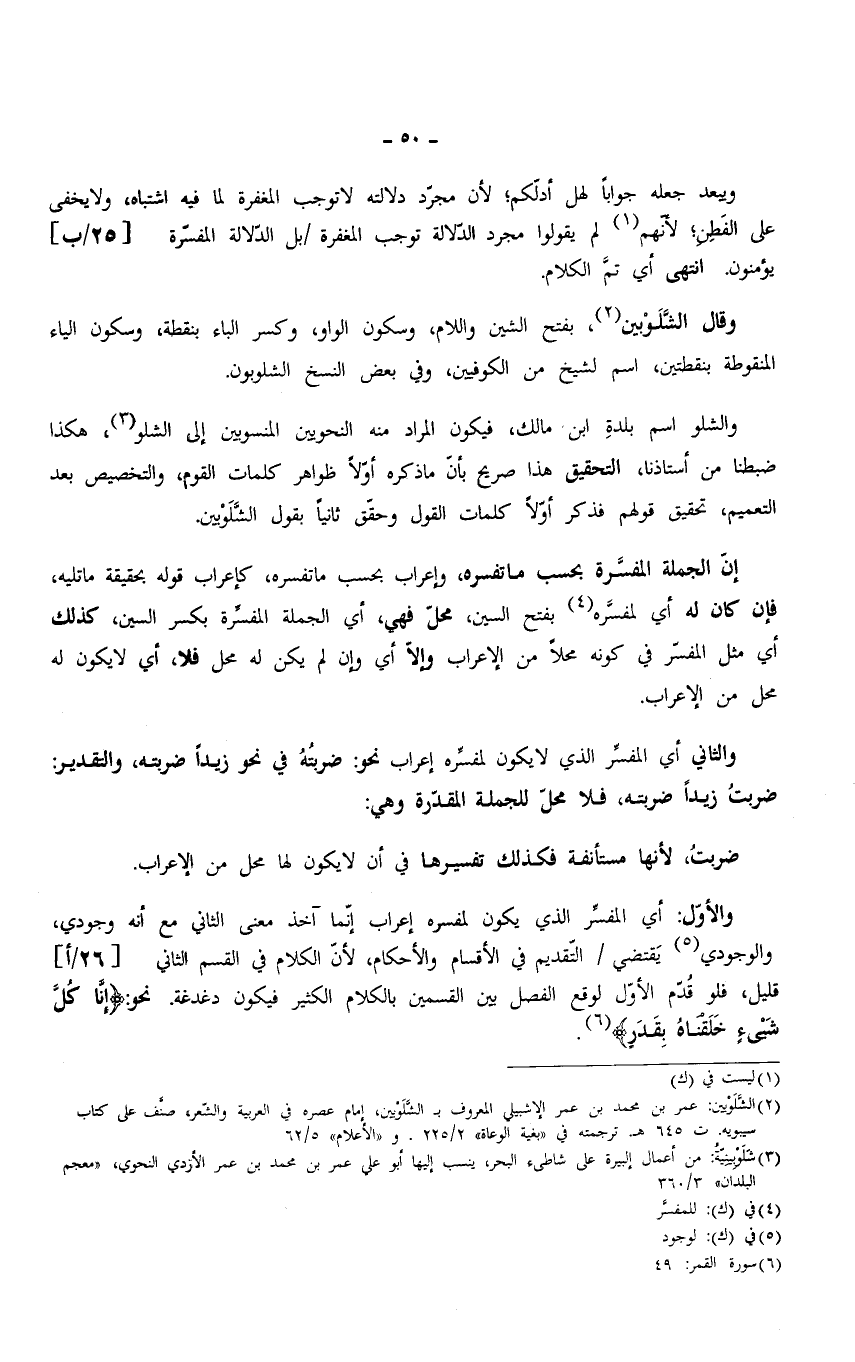 - ٥٠ -
ويبعد جعله جواباً لهل أدلّكم؛ لأن مجرّد دلالته لاتوجب المغفرة لما فيه اشتباه، ولايخفى
على الفَطِنِ؛ لأنّهم(١) لم يقولوا مجرد الدّلالة توجب المغفرة /بل الدّلالة المفسّرة [٢٥/ب]
يؤمنون. انتهى أي تمَّ الكلام.
وقال الشَّلَوْبين(٢)، بفتح الشين واللام، وسكون الواو، وكسر الباء بنقطة، وسكون الياء
المنقوطة بنقطتين، اسم لشيخ من الكوفيين، وفي بعض النسخ الشلوبون.
والشلو اسم بلدةِ ابن مالك، فيكون المراد منه النحويين المنسوبين إلى الشلو(٣)، هكذا
ضبطنا من أستاذنا، التحقيق هذا صريح بأنّ ماذكره أوّلاً ظواهر كلمات القوم، والتخصيص بعد
التعميم، تحقيق قولهم فذكر أوّلاً كلمات القول وحقّق ثانياً بقول الشَّلَوْبين.
إنّ الجملة المفسَّرة بحسب ماتفسره، وإعراب بحسب ماتفسره، كإعراب قوله بحقيقة ماتليه،
فإن كان له أي لمفسَّره(٤) بفتح السين، محلّ فهي، أي الجملة المفسِّرة بكسر السين، كذلك
أي مثل المفسّر في كونه محلاً من الإعراب وإلاّ أي وإن لم يكن له محل فلا، أي لايكون له
محل من الإعراب.
والثاني أي المفسِّر الذي لايكون لمفسِّره إعراب نحو: ضربتُهُ في نحو زيداً ضربته، والتقدير:
ضربتُ زيداً ضربته، فلا محلّ للجملة المقدّرة وهي:
ضربتُ، لأنها مستأنفة فكذلك تفسيرها في أن لايكون لها محل من الإعراب.
والأوّل: أي المفسِّر الذي يكون لمفسره إعراب إنّما آخذ معنى الثاني مع أنه وجودي،
والوجودي(٥) يَقتضي / التّقديم في الأقسام والأحكام، لأنّ الكلام في القسم الثاني [٢٦/أ]
قليل، فلو قُدّم الأوّل لوقع الفصل بين القسمين بالكلام الكثير فيكون دغدغة. نحو:﴿إنَّا كُلَّ
شَيْىءٍ خَلَقْنَاهُ بِقَدَرٍ﴾(٦).
(١) ليست في (ك)
(٢) الشَّلَوْبين: عمر بن محمد بن عمر الإشبيلي المعروف بـ الشَّلَوْبين، إمام عصره في العربية والشّعر، صنَّف على كتاب
سيبويه. ت ٦٤٥ هـ. ترجمته في «بغية الوعاة» ٢٢٥/٢ . و «الأعلام» ٦٢/٥
(٣) شَلَوْبِينِيَّةُ: من أعمال إلبيرة على شاطىء البحر، ينسب إليها أبو علي عمر بن محمد بن عمر الأزدي النحوي، «معجم
البلدان» ٣٦٠/٣
(٤) في (ك): للمفسَّر
(٥) في (ك): لوجود
(٦) سورة القمر: ٤٩